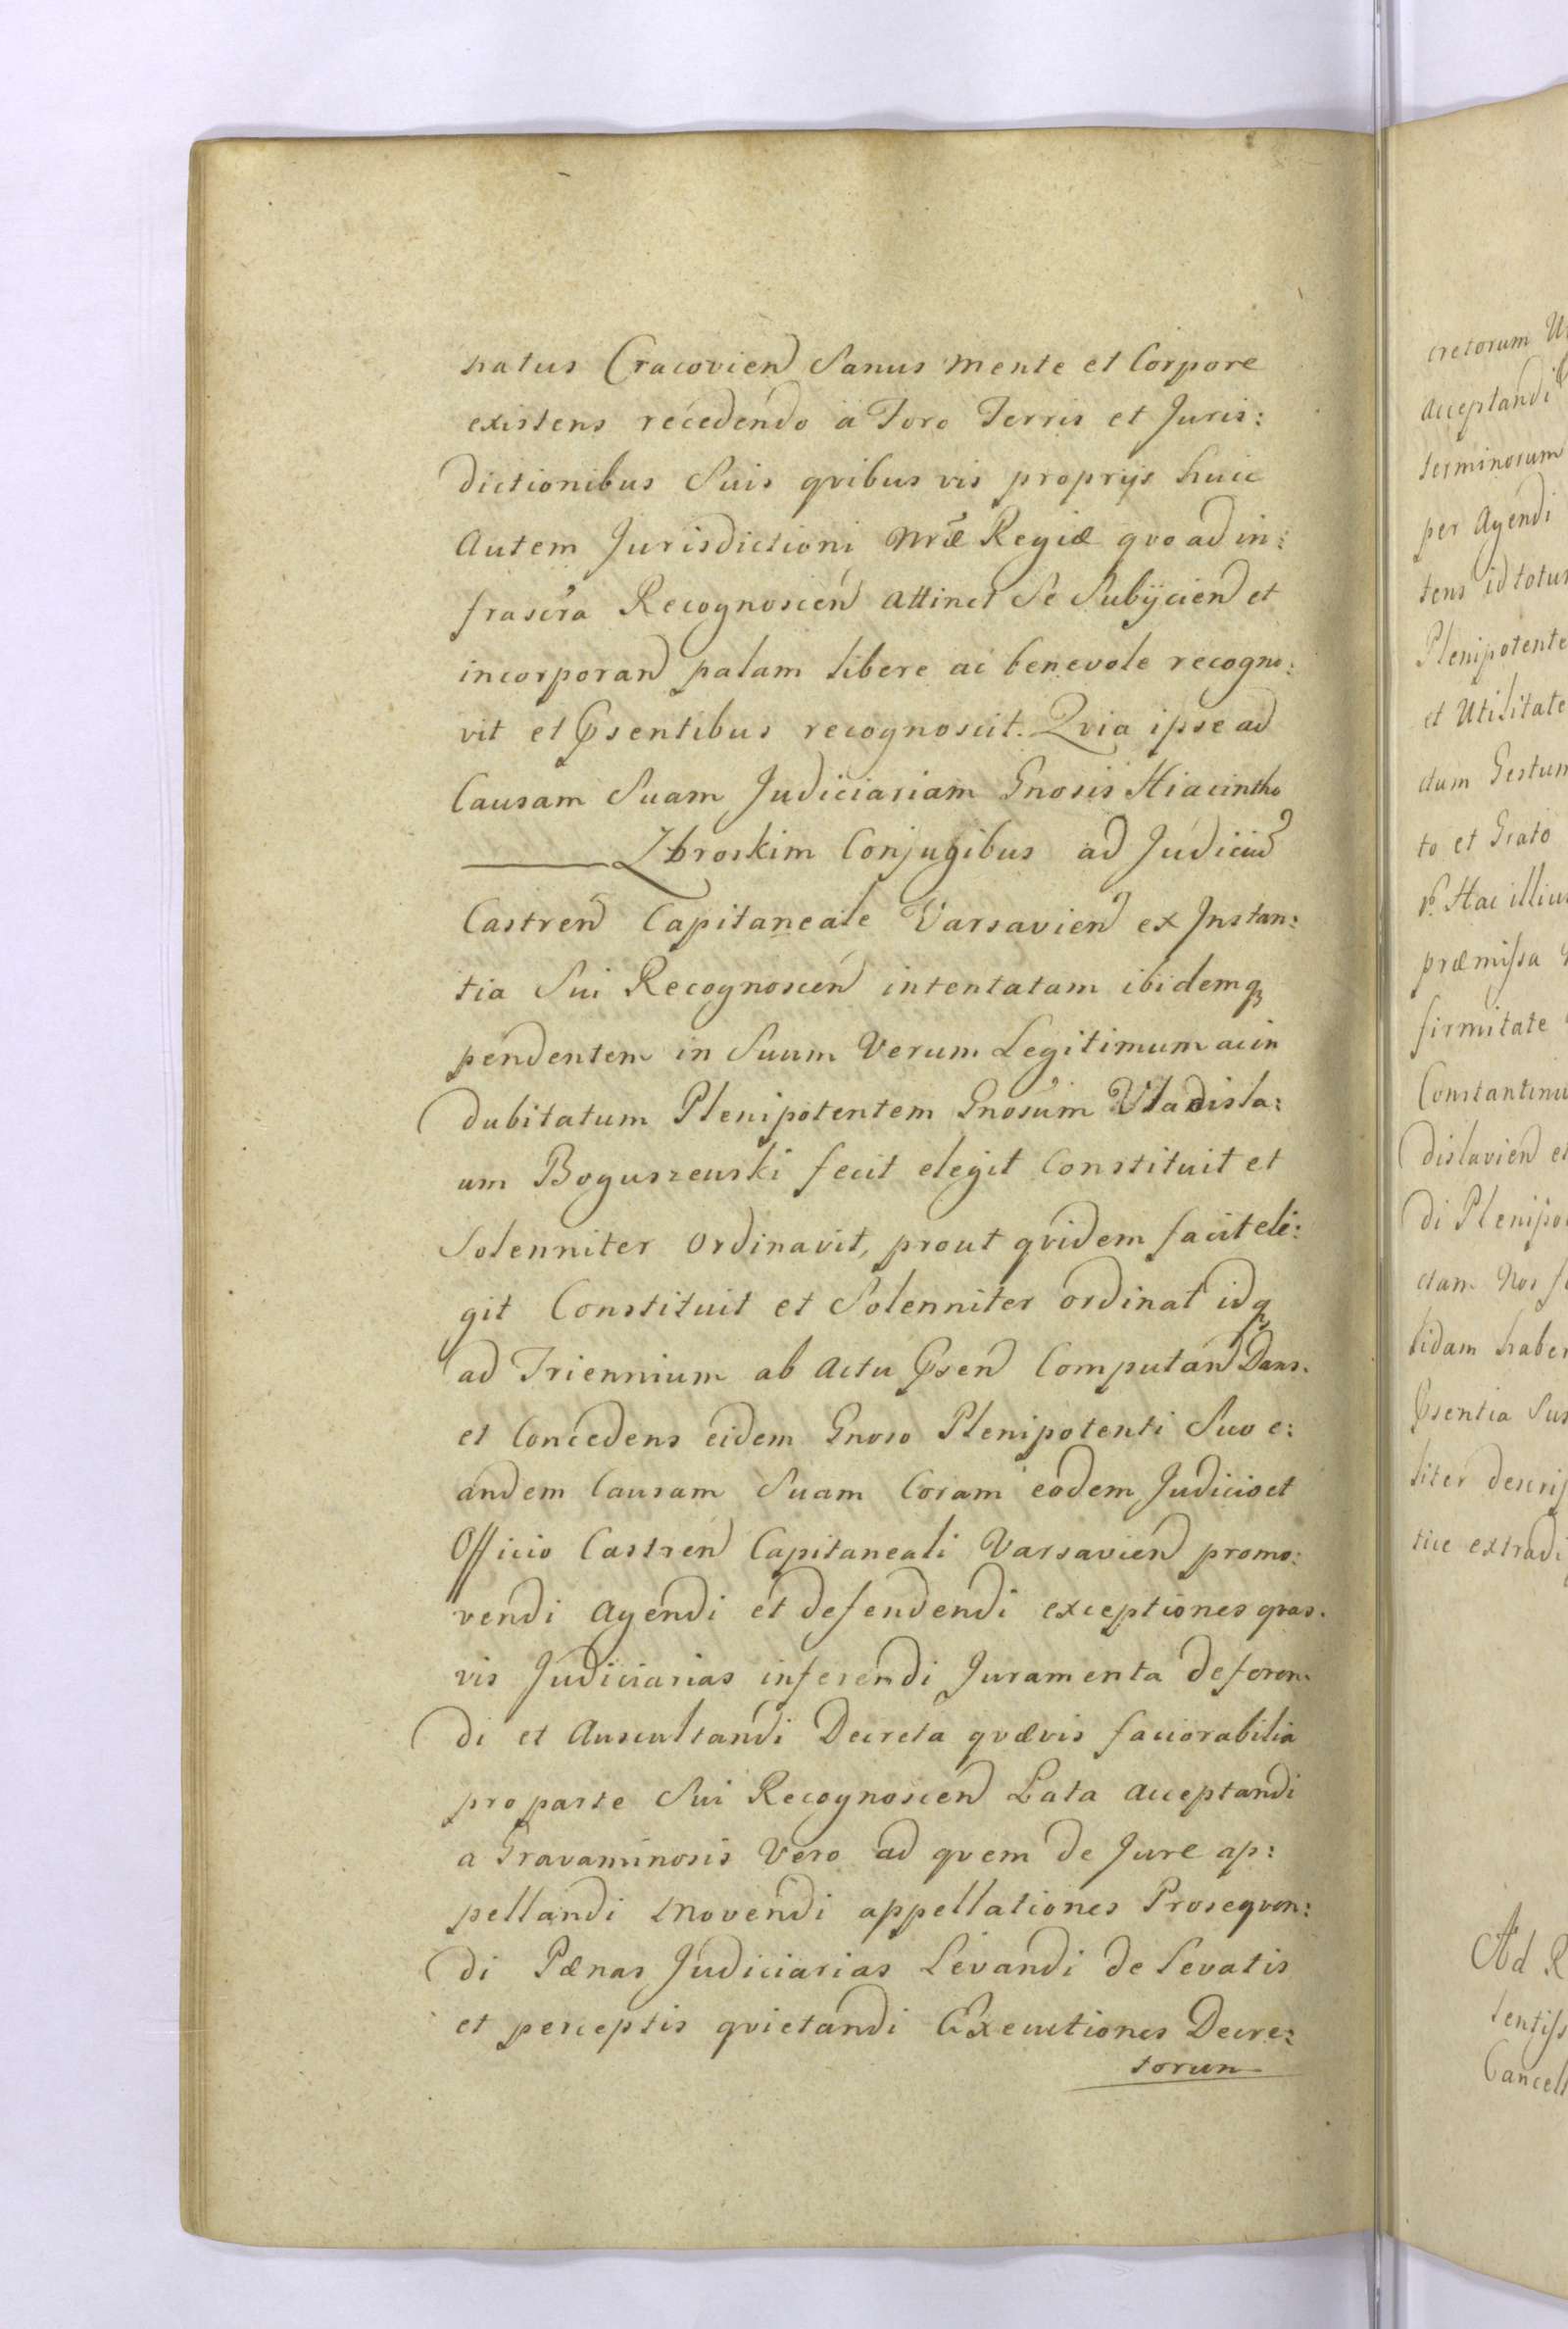 natus Cracovien Sanus mente et Corpore
existens recedendo a Foro Terris et Juris:
dictionibus Suis qvibus vis proprijs huic
Autem Jurisdictioni Nræ Regiæ qvo ad in:
frascra Recognoscen attinet Se Subijcien et
incorporan palam libere ac benevole recogno:
vit et Psentibus recognoscit. Qvia ipse ad
Causam Suam Judiciariam Gnosis Hiacintho
Zbroskim Conjugibus ad Judiciu
Castren Capitaneale Varsavien ex Instan:
tia Sui Recognoscen intentatam ibidemq
pendentem in Suum Verum Legitimum ac in
dubitatum Plenipotentem Gnosum Vladisla:
um Boguszewski fecit elegit Constituit et
Solenniter Ordinavit, prout qvidem facit eli:
git Constituit et Solenniter ordinat idq
ad Triennium ab Actu Psen Computan Dans.
et Concedens eidem Gnoso Plenipotenti Suo e:
andem Causam Suam Coram eodem Judicio et
Officio Castren Capitaneali Varsavien promo:
vendi Agendi et defendendi exceptiones qvas.
vis Judiciarias inferendi Juramenta deferen.
di et Auscultandi Decreta qvævis favorabilia
pro parte Sui Recognoscen Lata acceptandi
a Gravaminosis Vero ad qvem de Jure ap:
pellandi Movendi appellationes Proseqven:
di Pænas Judiciarias Levandi de Levatis
et perceptis qvietandi Executiones Decre:
torum
cretorum
Acceptandi
terminorum
per Agendi
tens id
Plenipotente
et Utilitate
dum Gestum
to et Grato
Hac illius
præmissa
firmitate
Constantinu
dislavien et
di Plenipo
ctam Nos
lidam haber
Psentia Sus
liter descrip
tice extradi
Ad R
tentiss
Cancell